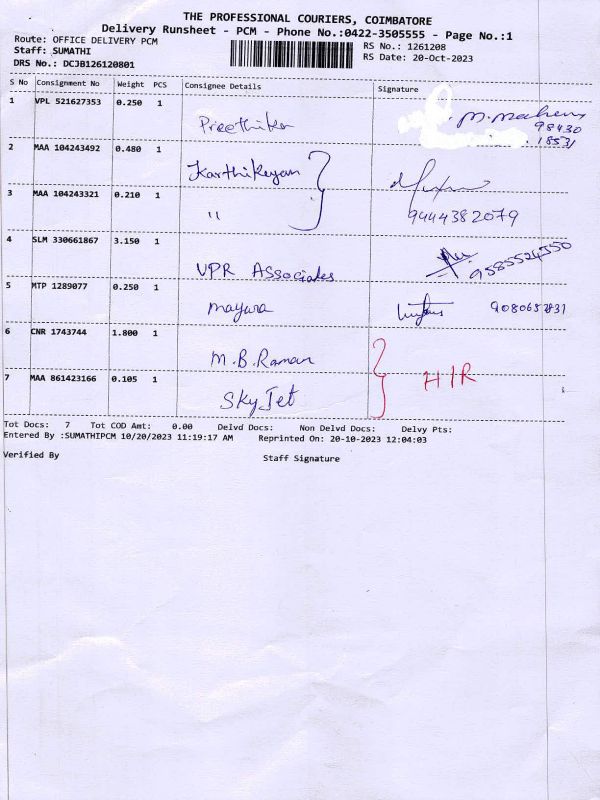 THE PROFESSIONAL COURIERS, COIMBATORE
Delivery Runsheet - PCM - Phone No.:0422-3505555 - Page No.:1
Route: OFFICE DELIVERY PCM
Staff: SUMATHI
DRS No.: DCJB126120801
RS No.: 1261208
RS Date: 20-Oct-2023
S No Consignment No Weight PCS Consignee Details Signature
1 VPL 521627353 0.250 1 Preethika M. 98430
18531
2 MAA 104243492 0.480 1 Karthikeyan
3 MAA 104243321 0.210 1 " 9444382079
4 SLM 330661867 3.150 1 VPR Associates 9585524550
5 MTP 1289077 0.250 1 mayura
6 CNR 1743744 1.800 1 M.B.Raman
HIR
7 MAA 861423166 0.105 1 Sky Jet
Tot Docs: 7 Tot COD Amt: 0.00 Delvd Docs: Non Delvd Docs: Delvy Pts:
Entered By :SUMATHIPCM 10/20/2023 11:19:17 AM Reprinted On: 20-10-2023 12:04:03
Verified By Staff Signature